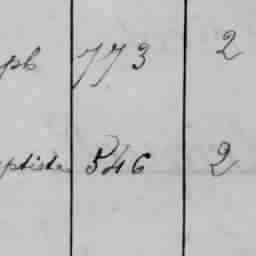 ph 773 2
ptista 546 2